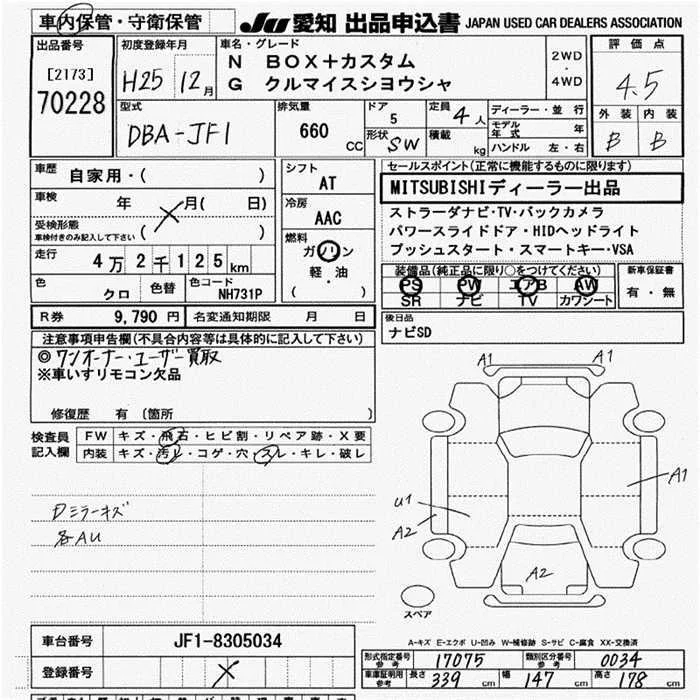 車内保管・守衛保管
JU 愛知 出品申込書 JAPAN USED CAR DEALERS ASSOCIATION
出品番号
[2173]
70228
初度登録年月
H25 12月
車名・グレード
N BOX+カスタム
G クルマイスシヨウシャ
2WD
・
4WD
評価点
4.5
外装 内装
B B
型式
DBA-JF1
排気量
660 CC
ドア
5
形状 SW
定員 4人
積載 kg
ディーラー・並行
モデル年式 年
ハンドル 左・右
車歴 自家用・( )
車検 年 月( 日)
受検形態
車検付きのみ記入して下さい ( )
走行 4万2千125km
色 クロ 色替 色コード NH731P
シフト
AT
冷房
AAC
燃料
ガソリン
軽・油
( )
セールスポイント(正常に機能するものに限ります)
MITSUBISHIディーラー出品
ストラーダナビ・TV・バックカメラ
パワースライドドア・HIDヘッドライト
プッシュスタート・スマートキー・VSA
装備品(純正品に限り○をつけてください)
PS PW エアB AW
SR ナビ TV カワシート
新車保証書
有・無
R券 9,790円 名変通知期限 月 日
後日品
ナビSD
注意事項申告欄(不具合内容等は具体的に記入して下さい)
◎ワンオーナー・ユーザー買取
※車いすリモコン欠品
修復歴 有 〔箇所 〕
検査員
記入欄
FW キズ・飛石・ヒビ割・リペア跡・X要
内装 キズ・汚レ・コゲ・穴・スレ・キレ・破レ
Dミラーキズ
各AU
A1 A1
A1
U1
A2
A2
スペア
A-キズ E-エクボ U-凹み W-補修跡 S-サビ C-腐食 XX-交換済
車台番号 JF1-8305034
登録番号
形式指定番号 参考 17075 類別区分番号 参考 0034
車庫証明用 参考 長さ 339 cm 幅 147 cm 高さ 178 cm